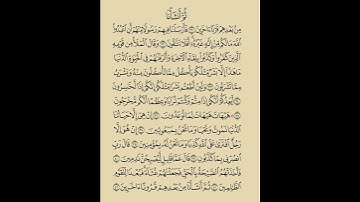 ثُمَّ أَنشَأْنَا
مِنۢ بَعْدِهِمْ قَرْنًا ءَاخَرِينَ ٣١ فَأَرْسَلْنَا فِيهِمْ رَسُولًا مِّنْهُمْ أَنِ ٱعْبُدُوا۟
ٱللَّهَ مَا لَكُم مِّنْ إِلَٰهٍ غَيْرُهُۥٓ أَفَلَا تَتَّقُونَ ٣٢ وَقَالَ ٱلْمَلَأُ مِن قَوْمِهِ
ٱلَّذِينَ كَفَرُوا۟ وَكَذَّبُوا۟ بِلِقَآءِ ٱلْءَاخِرَةِ وَأَتْرَفْنَٰهُمْ فِى ٱلْحَيَوٰةِ ٱلدُّنْيَا
مَا هَٰذَآ إِلَّا بَشَرٌ مِّثْلُكُمْ يَأْكُلُ مِمَّا تَأْكُلُونَ مِنْهُ وَيَشْرَبُ
مِمَّا تَشْرَبُونَ ٣٣ وَلَئِنْ أَطَعْتُم بَشَرًا مِّثْلَكُمْ إِنَّكُمْ إِذًا لَّخَٰسِرُونَ
٣٤ أَيَعِدُكُمْ أَنَّكُمْ إِذَا مِتُّمْ وَكُنتُمْ تُرَابًا وَعِظَٰمًا أَنَّكُم مُّخْرَجُونَ
٣٥ هَيْهَاتَ هَيْهَاتَ لِمَا تُوعَدُونَ ٣٦ إِنْ هِىَ إِلَّا حَيَاتُنَا
ٱلدُّنْيَا نَمُوتُ وَنَحْيَا وَمَا نَحْنُ بِمَبْعُوثِينَ ٣٧ إِنْ هُوَ إِلَّا
رَجُلٌ ٱفْتَرَىٰ عَلَى ٱللَّهِ كَذِبًا وَمَا نَحْنُ لَهُۥ بِمُؤْمِنِينَ ٣٨ قَالَ رَبِّ
ٱنصُرْنِى بِمَا كَذَّبُونِ ٣٩ قَالَ عَمَّا قَلِيلٍ لَّيُصْبِحُنَّ نَٰدِمِينَ ٤٠
فَأَخَذَتْهُمُ ٱلصَّيْحَةُ بِٱلْحَقِّ فَجَعَلْنَٰهُمْ غُثَآءً فَبُعْدًا لِّلْقَوْمِ
ٱلظَّٰلِمِينَ ٤١ ثُمَّ أَنشَأْنَا مِنۢ بَعْدِهِمْ قُرُونًا ءَاخَرِينَ ٤٢